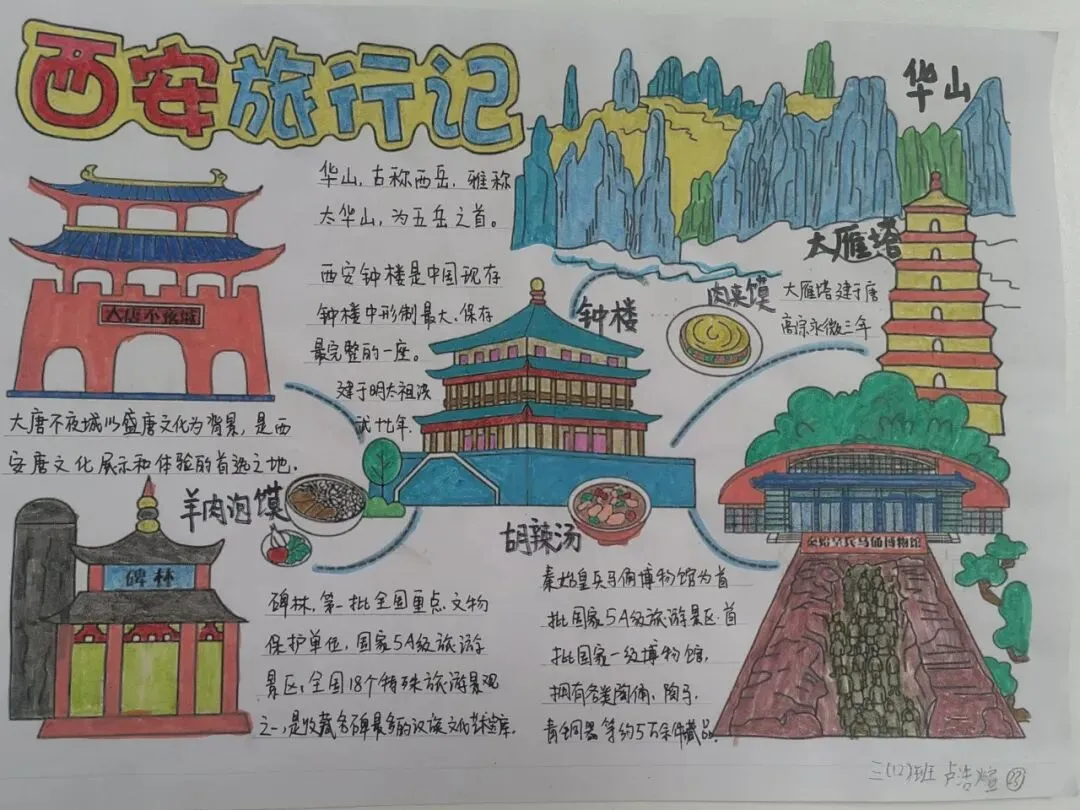 西安旅行记
华山
华山，古称西岳，雅称
太华山，为五岳之首。
大唐不夜城
大唐不夜城以盛唐文化为背景，是西
安唐文化展示和体验的首选之地.
西安钟楼是中国现存
钟楼中形制最大、保存
最完整的一座。
建于明太祖洪
武十七年.
钟楼
肉夹馍
大雁塔
大雁塔建于唐
高宗永徽三年
羊肉泡馍
胡辣汤
碑林
碑林，第一批全国重点文物
保护单位，国家5A级旅游
景区，全国18个特殊旅游景观
之一，是收藏名碑最多的汉族文化艺术宝库.
秦始皇兵马俑博物馆
秦始皇兵马俑博物馆为首
批国家5A级旅游景区.首
批国家一级博物馆，
拥有各类陶俑、陶马、
青铜器等约5万余件藏品.
三(12)班 卢浩煊 23